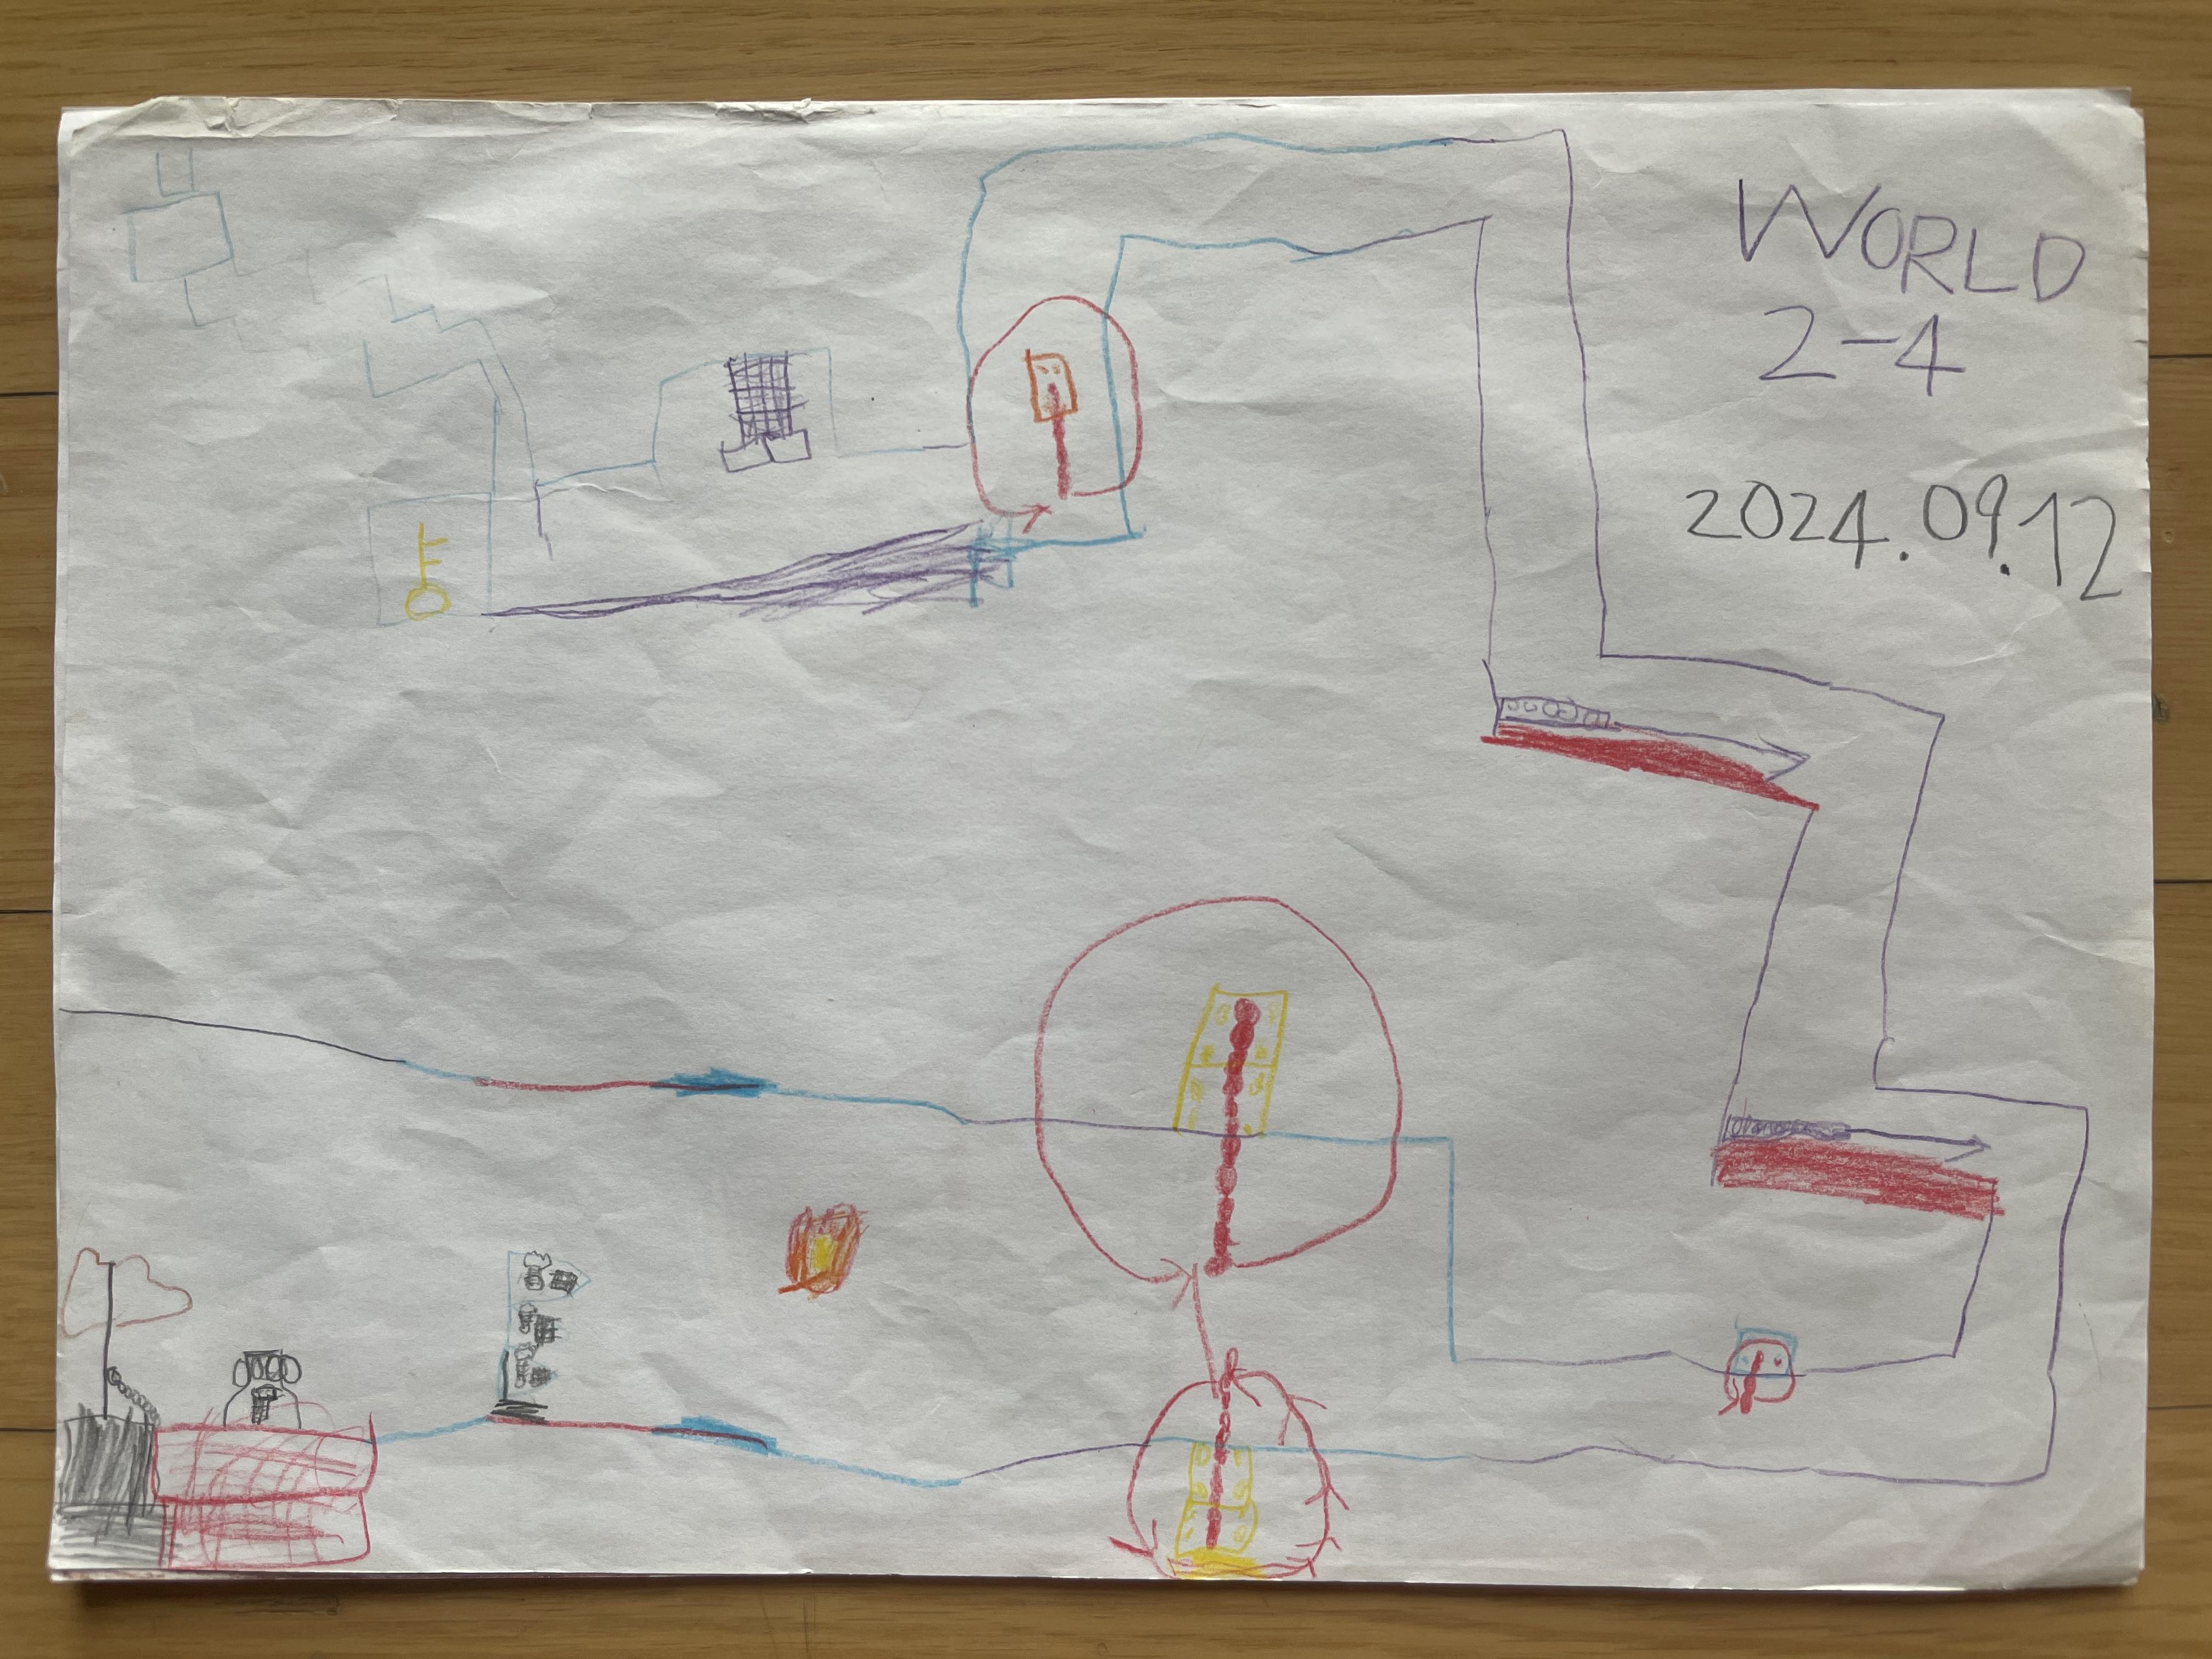 WORLD
2-4
2024.09.12